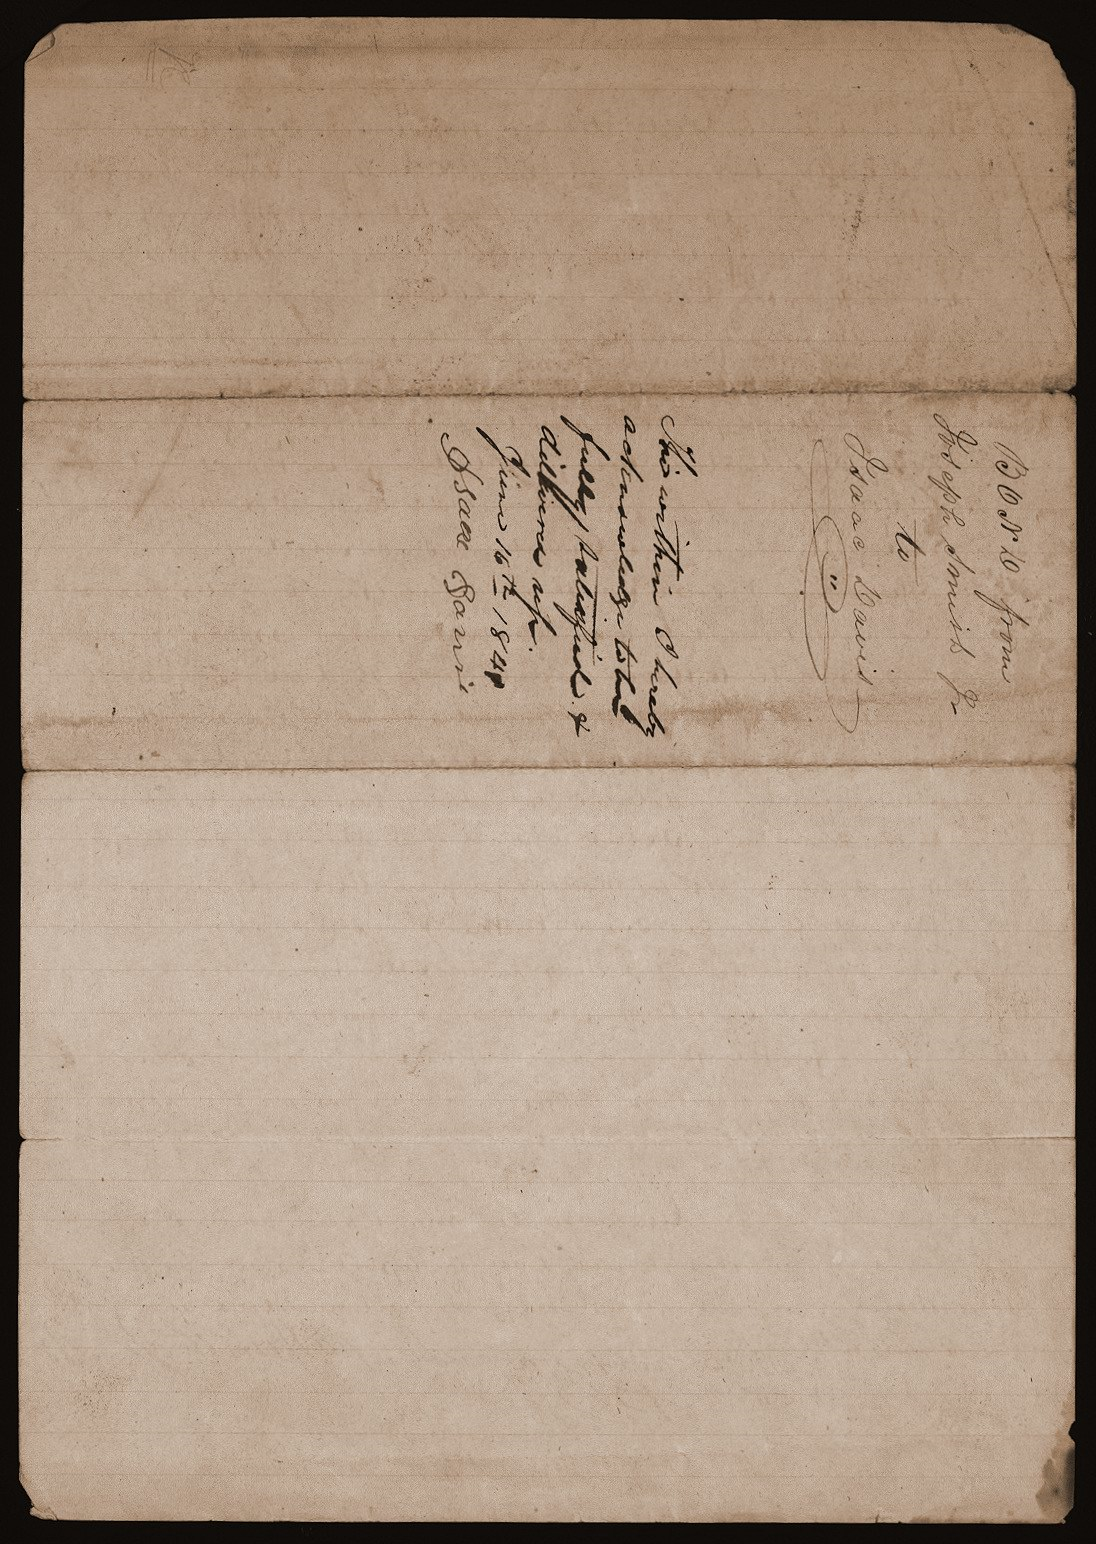 BOND from
Joseph Smith Jr
to
Isaac Davis
The within I hereby
acknowledge to be
fully satisfied &
delivered up.
June 16th 184
Isaac Davis